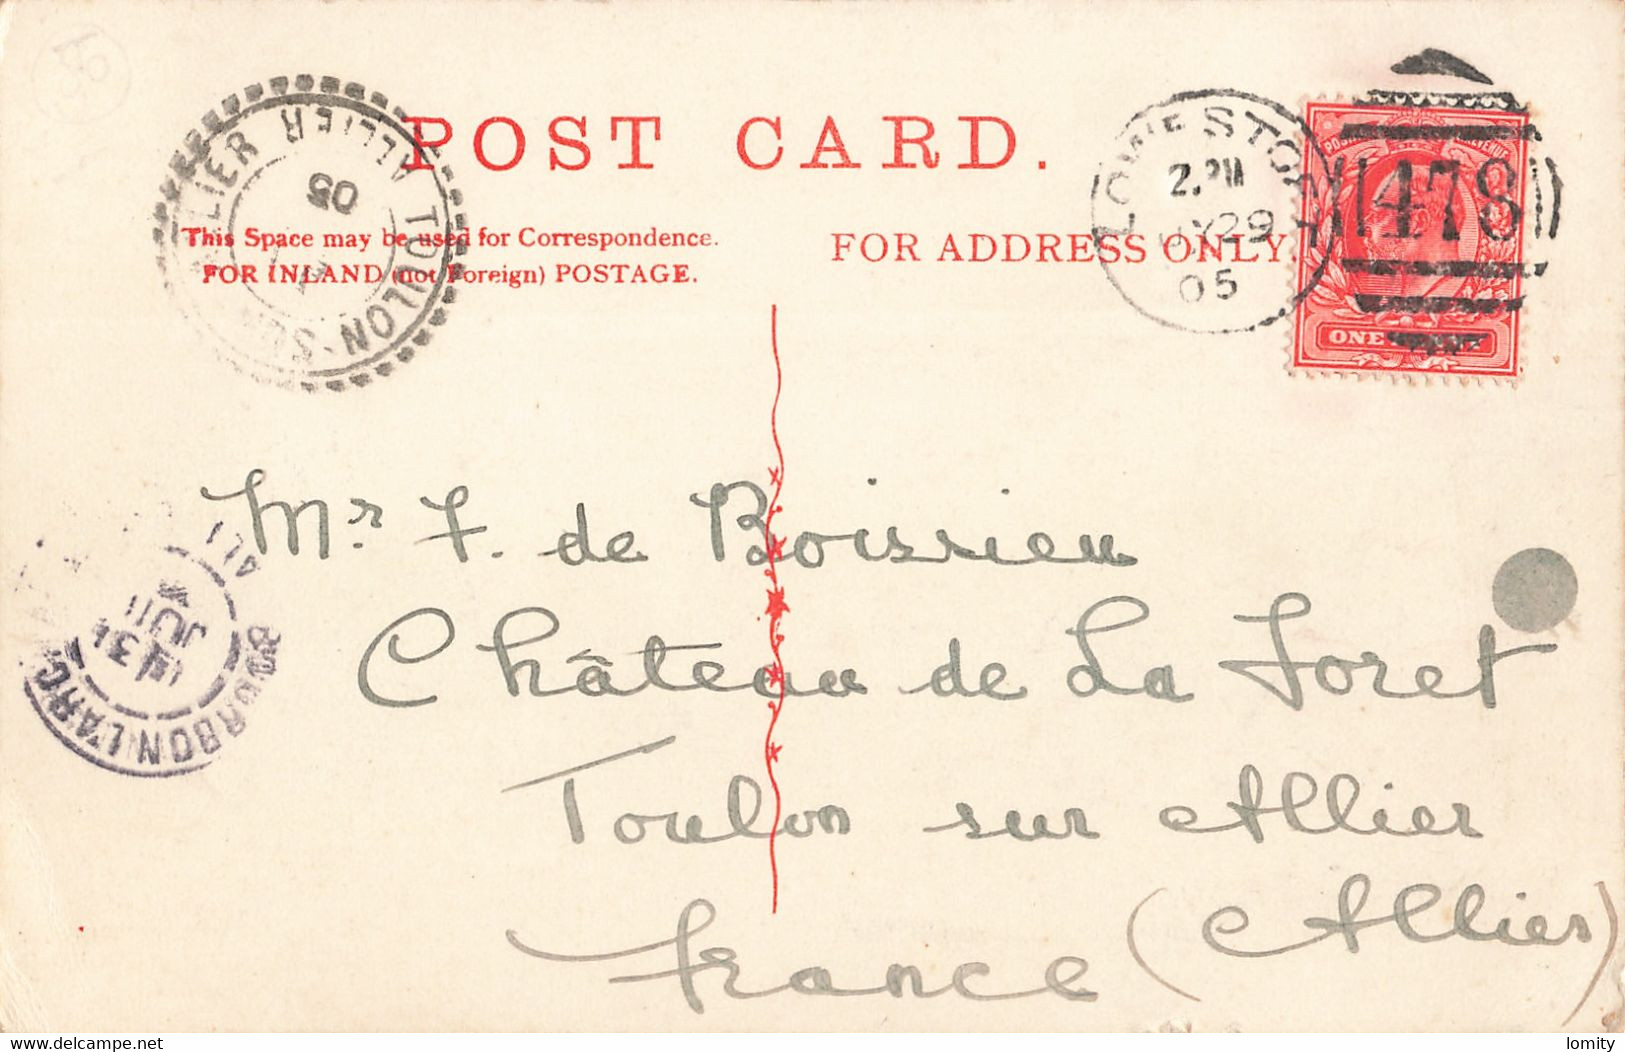 POST CARD.
This Space may be used for Correspondence.
FOR INLAND (not Foreign) POSTAGE.
FOR ADDRESS ONLY.
LOWESTOFT
2. PM
29
05
478
ONE PENNY
TOULON-SUR-ALLIER ALLIER
05
BOURBON L'ARCH
31
Mr F. de Boissieu
Château de La Foret
Toulon sur Allier
France (Allier)
delcampe.net
lomity